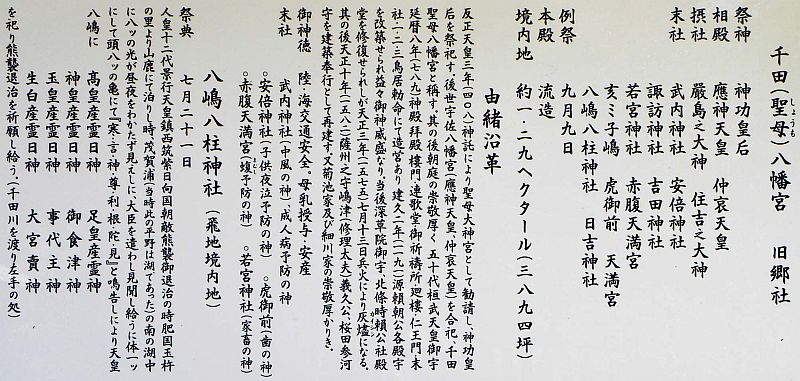 千田(聖母)八幡宮 旧郷社
しょうも
祭神 神功皇后
相殿 應神天皇 仲哀天皇
摂社 嚴島之大神 住吉之大神
末社 武内神社 安倍神社
諏訪神社 吉田神社
若宮神社 赤腹天満宮
亥ミ子嶋 虎御前 天満宮
八嶋八柱神社 日吉神社
例祭 九月九日
本殿 流造
境内地 約一・二九ヘクタール(三八九四坪)
由緒沿革
反正天皇三年(四〇八)神託により聖母大神宮として勧請し、神功皇
后を祭祀す、後世宇佐八幡宮(應神天皇、仲哀天皇)を合祀、千田
聖母八幡宮と称す、其の後朝庭の崇敬厚く五十代桓武天皇御宇
延暦八年(七八九)神殿拜殿樓門連歌堂御祈祷所廻樓・仁王門・末
社・一・二・三鳥居勅命にて造営あり建久二年(一一九一)源頼朝公各殿宇
を改築せられ益々御神威盛なり、当後深草院御宇、北條時頼公社殿
堂を修復せられしが天正三年(一五七五)七月十三日兵火により灰燼になる、
其の後天正十年(一五八二)薩州之守嶋津(修理太夫)義久公、桜田参河
守を建築奉行として再建す、又菊池家及び細川家の崇敬厚かりき、
御神徳 陸・海交通安全。母乳授与・安産
末社 武内神社(中風の神)、成人病予防の神
○安倍神社(子供夜泣予防の神) ○虎御前(歯の神)
○赤腹天満宮(蝮予防の神) ○若宮神社(家畜の神)
まむし
八嶋八柱神社(飛地境内地)
祭典 七月二十一日
人皇十二代景行天皇鎮西筑紫日向国朝敵熊襲御退治の時肥国玉杵
の里より山鹿にて泊りし時、茂賀浦(当時此の平野は湖てあった)の南の湖中
に八ッの光が昼夜をわかたず見えしに、大臣を遣わし見聞し給うに体一ッ
にして頭八ッの亀にて『寒・言・神・尊・利・根・陀・見』と鳴告しにより天皇
八嶋に 高皇産霊日神 足皇産霊神
神皇産霊日神 御食津神
玉皇産霊日神 事代主神
生白産霊日神 大宮賣神
を祀り熊襲退治を祈願し給う、(千田川を渡り左手の処)